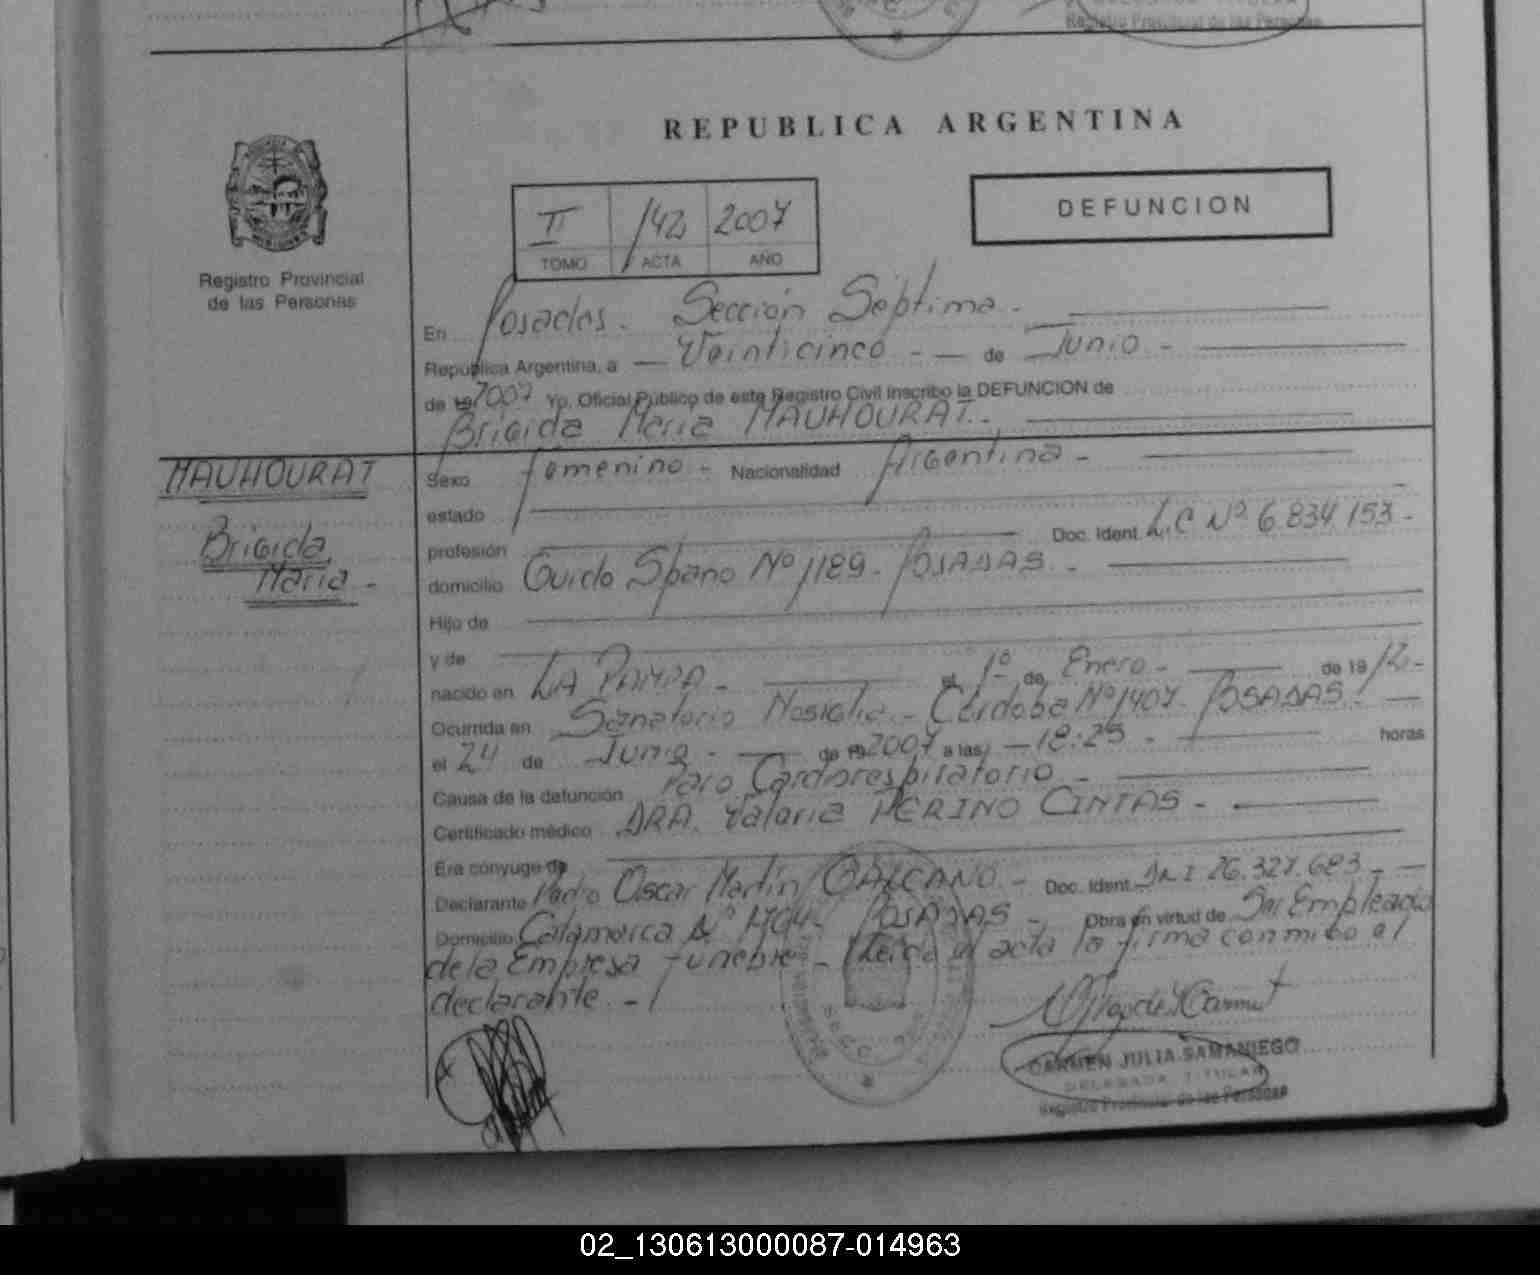 Registro Provincial de las Personas
REPUBLICA ARGENTINA
DEFUNCION
II 142 2007
TOMO ACTA AÑO
Registro Provincial
de las Personas
En Posadas. Sección Séptima.
República Argentina, a Veinticinco - de Junio -
de 19 2007 Yo, Oficial Público de este Registro Civil Inscribo la DEFUNCION de
Brigida Maria MAUHOURAT. -
MAUHOURAT
Brigida
Maria -
Sexo femenino - Nacionalidad Argentina -
estado
profesión Doc. Ident. L.C Nº 6.834.153 -
domicilio Guido Spano Nº 1189 - POSADAS. -
Hijo de
y de
nacido en LA PAMPA - el 1º de Enero - de 19 12 -
Ocurrida en Sanatorio Nosiglia - Córdoba Nº 1407 - POSADAS. -
el 24 de Junio - de 19 2007 a las - 18:25 - horas
Causa de la defunción Paro Cardiorespiratorio -
Certificado médico DRA. Valeria PERINO CINTAS -
Era cónyuge de
Declarante Pedro Oscar Martin GALEANO - Doc. Ident. D.N.I 26.327.683 -
Domicilio Catamarca Nº 1704 - POSADAS - Obra en virtud de Ser Empleado
de la Empresa funebre - Leida el acta la firma conmigo el
declarante. -
CARMEN JULIA SAMANIEGO
DELEGADA TITULAR
Registro Provincial de las Personas
02_130613000087-014963